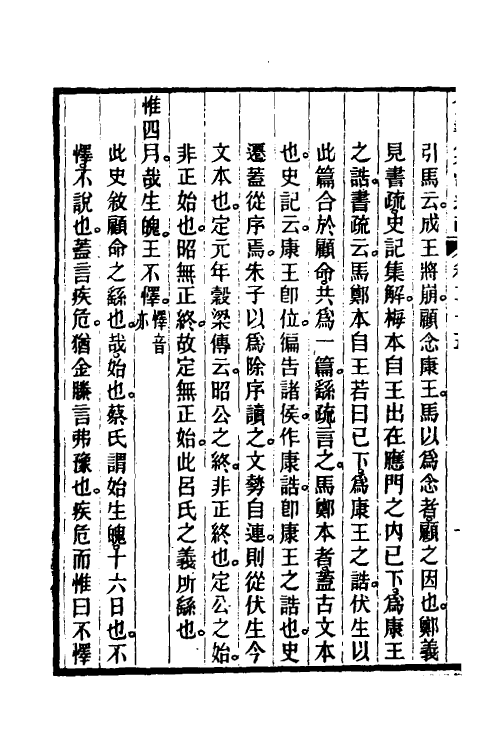 引馬云。成王將崩。顧念康王。馬以爲念者。顧之因也。鄭義
見書疏。史記集解。梅本自王出在應門之内已下。爲康王
之誥。書疏云。馬鄭本自王若曰已下。爲康王之誥。伏生以
此篇合於顧命。共爲一篇。繇疏言之。馬鄭本者。蓋古文本
也。史記云。康王卽位。徧告諸侯。作康誥。卽康王之誥也。史
遷蓋從序焉。朱子以爲除序讀之。文勢自連。則從伏生今
文本也。定元年穀梁傳云。昭公之終。非正終也。定公之始。
非正始也。昭無正終。故定無正始。此呂氏之義所繇也。
惟四月。哉生魄。王不懌。懌音亦
此史敘顧命之繇也。哉。始也。蔡氏謂始生魄。十六日也。不
懌。不說也。蓋言疾危。猶金縢言弗豫也。疾危而惟曰不懌